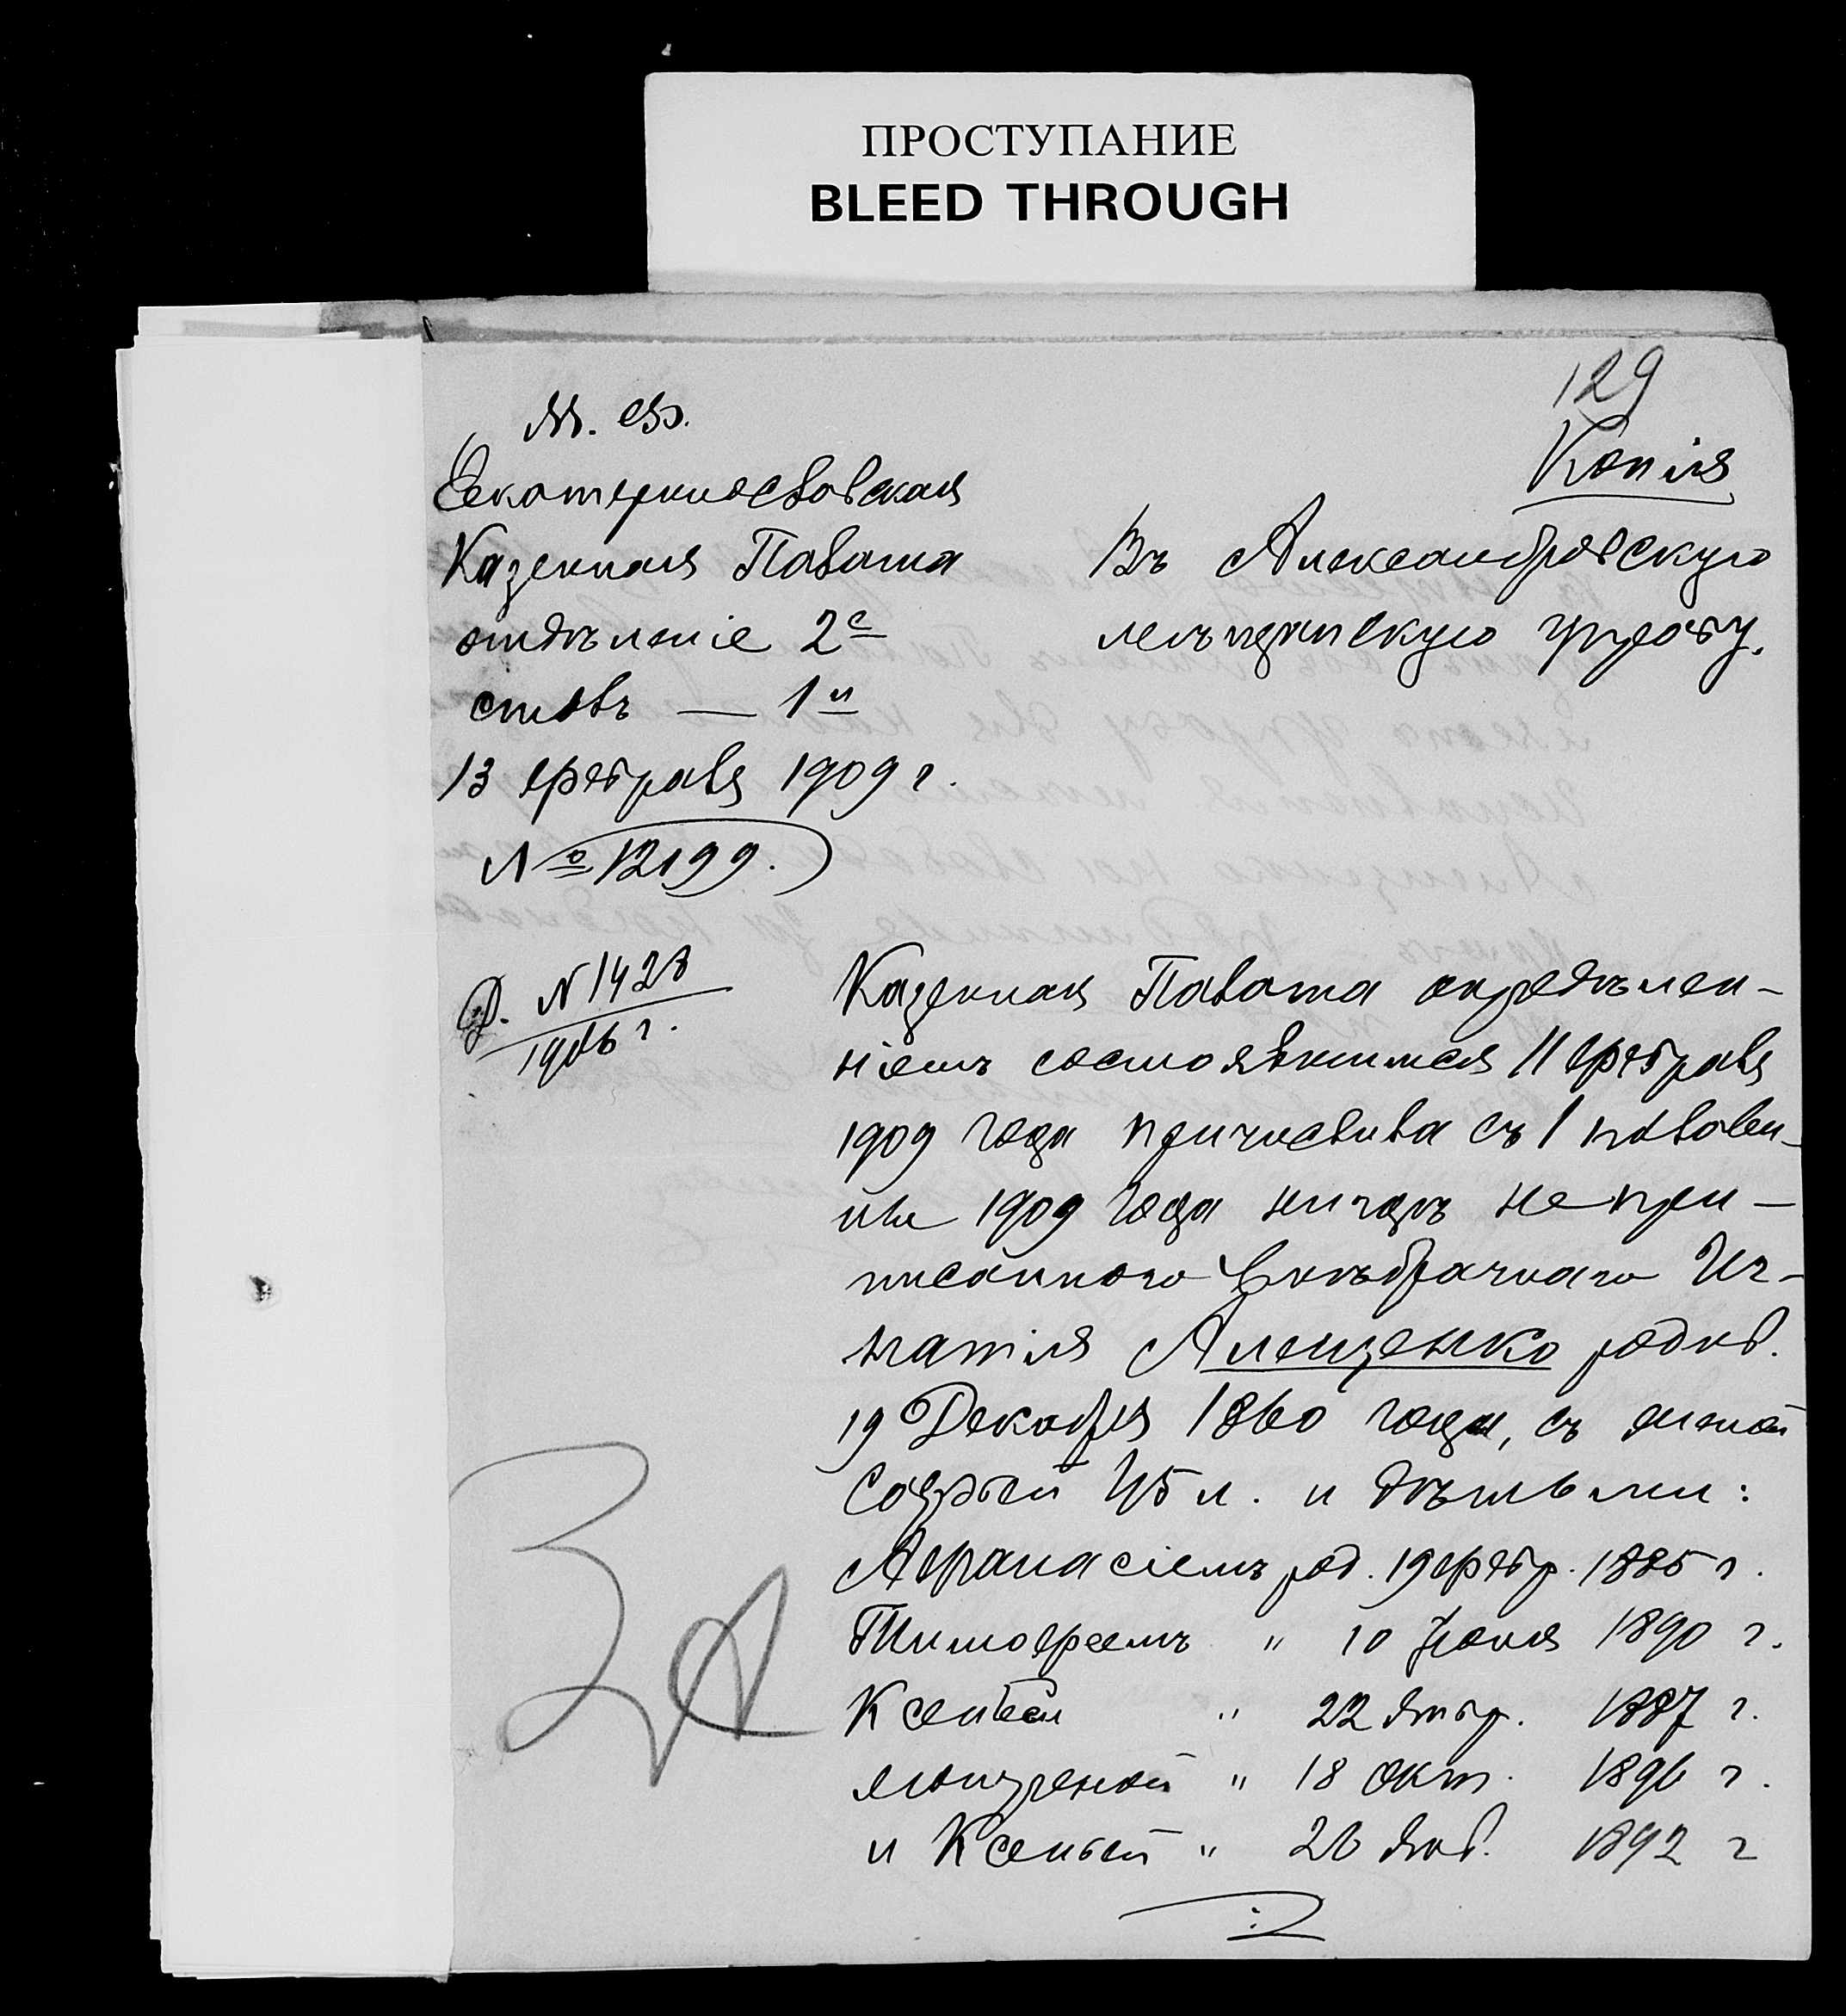 ПРОСТУПАНИЕ
BLEED THROUGH
129
Копія
М. Ф.
Екатеринославская
Казенная Палата
отдѣленіе 2е
столъ — 1й
13 февраля 1909 г.
№ 12199.
Въ Александровскую
мѣщанскую управу.
Д. N 1428
1906 г.
Казенная Палата опредѣлен-
ніемъ состоявшимся 11 февраля
1909 года причислила съ 1 полови-
ны 1909 года нигдѣ не при-
писанного внѣбрачнаго Иг-
натія Алещенко родив.
19 Декабря 1860 года, съ женой
Софьей 45 л. и дѣтьми:
Афанасіемъ род. 19 февр. 1885 г.
Тимофеемъ " 10 Іюня 1890 г.
Ксеніей " 22 1887 г.
" 18 окт. 1896 г.
и Ксеніей " 26 Янв. 1892 г